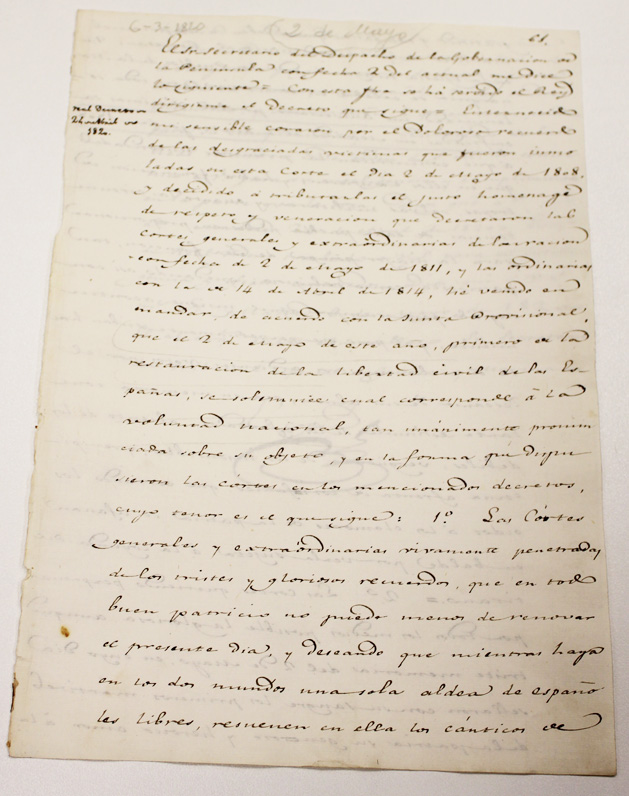 6-3-1820
2 de Mayo
61.
El Sr. Secretario del Despacho de la Gobernacion de
la Peninsula con fecha 2 del actual me dice
lo siguiente = Con esta fha se ha servido el Rey
dirigirme el Decreto que sigue =
Real Decreto
24 Abril
182
mi sensible corazon por el Doloroso recuerdo
de las desgraciadas victimas que fueron inmo
ladas en esta Corte el dia 2 de Mayo de 1808.
y decidido á tributarlas el justo homenage
de respeto y veneracion que decretaron las
cortes generales y extraordinarias de la nacion
con fecha de 2 de Mayo de 1811, y las ordinarias
con la de 14 de Abril de 1814, hé venido en
mandar, de acuerdo con la Junta Provisional,
que el 2 de Mayo de este año, primero de la
restauracion de la libertad civil de las Es-
pañas, se solemnice cual corresponde á la
voluntad nacional, tan unánimente pronun
ciada sobre su objeto, y en la forma que dispu
sieron las córtes en los mencionados decretos,
cuyo tenor es el que sigue: 1º Las Córtes
generales y extraordinarias vivamente penetradas
de los tristes y gloriosos recuerdos, que en todo
buen patricio no puede menos de renovar
el presente dia, y deseando que mientras haya
en los dos mundos una sola aldea de españo
les libres, resuenen en ella los cánticos de